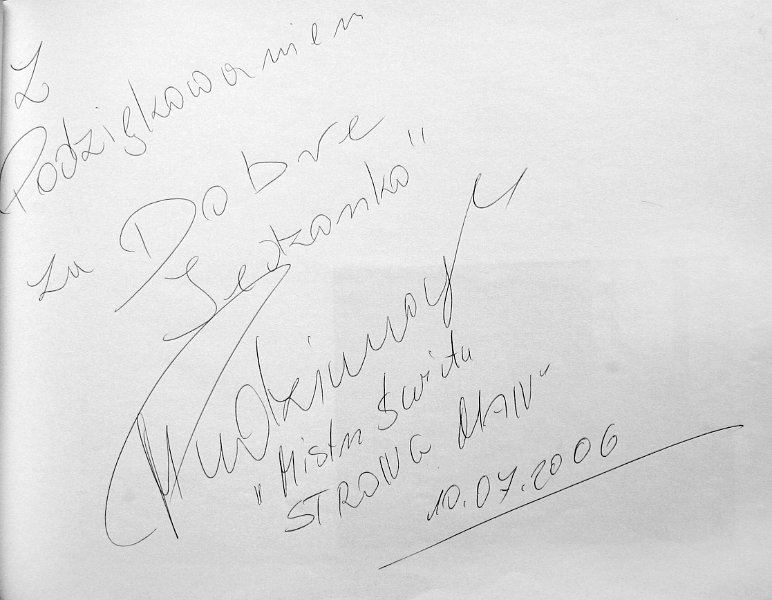 Z
Podziękowaniem
za Dobre
Jedzonko"
Pudzianowski
"Mistrz Świata
STRONG MAN"
10.07.2006